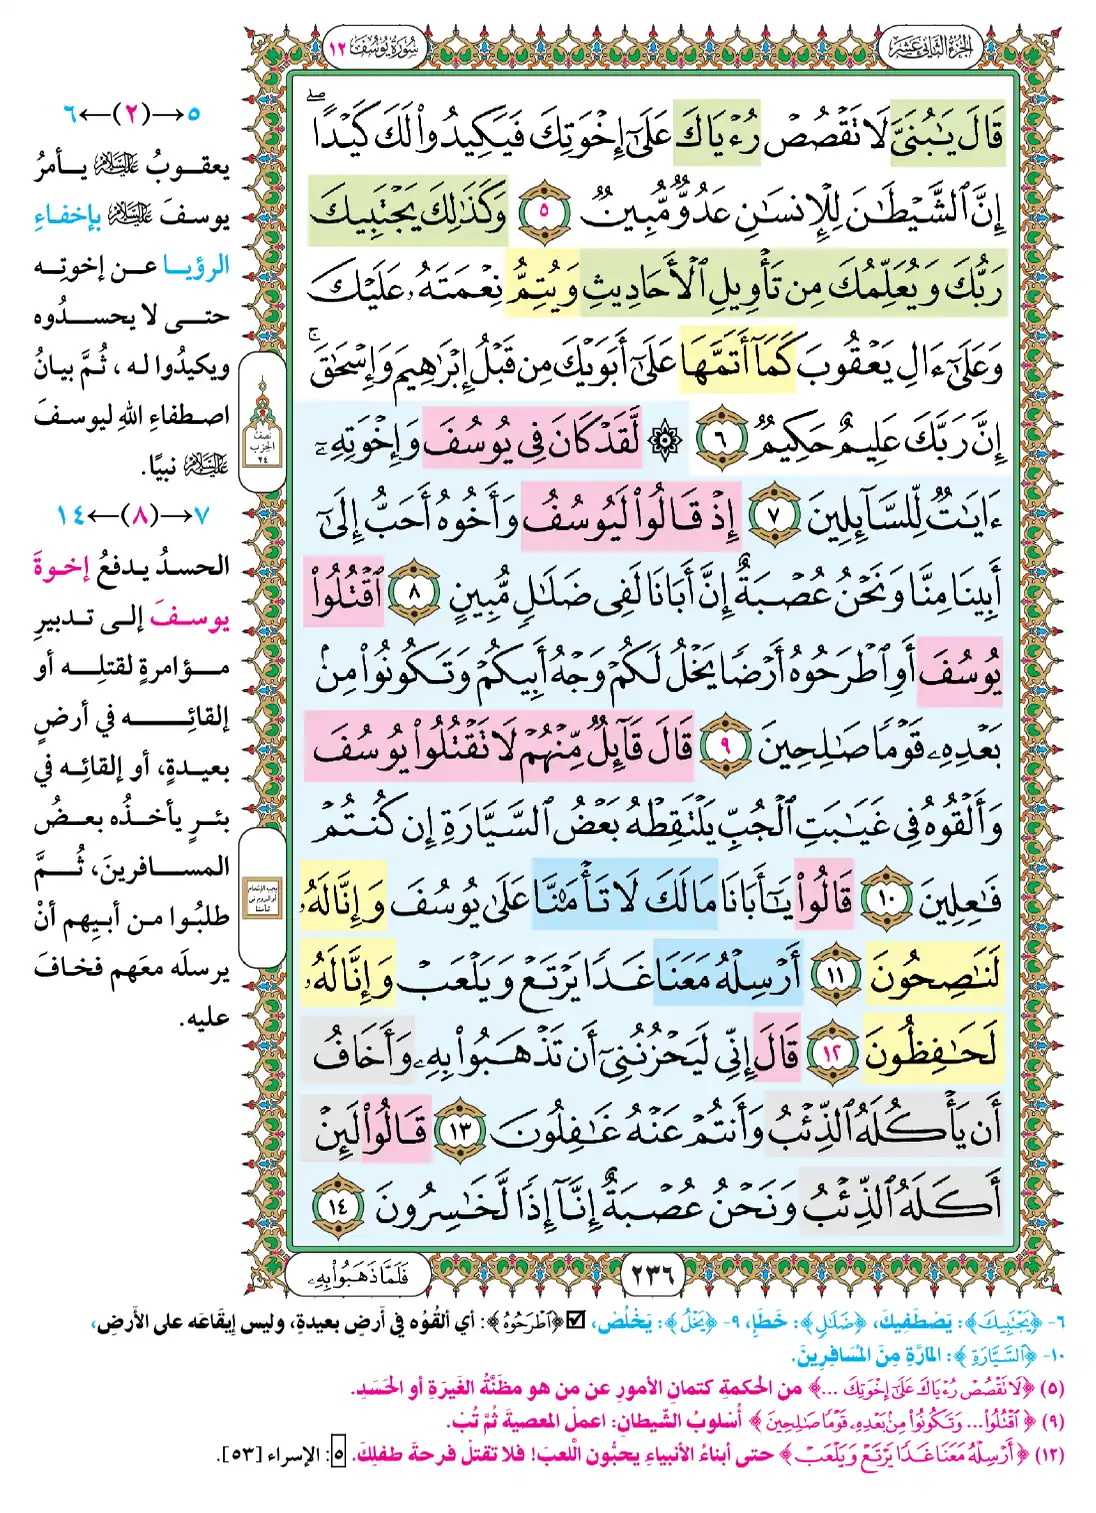 الجزء الثاني عشر
سورة يوسف ١٢
قَالَ يَٰبُنَيَّ لَا تَقْصُصْ رُءْيَاكَ عَلَىٰٓ إِخْوَتِكَ فَيَكِيدُوا۟ لَكَ كَيْدًا ۖ
إِنَّ ٱلشَّيْطَٰنَ لِلْإِنسَٰنِ عَدُوٌّ مُّبِينٌ ٥ وَكَذَٰلِكَ يَجْتَبِيكَ
رَبُّكَ وَيُعَلِّمُكَ مِن تَأْوِيلِ ٱلْأَحَادِيثِ وَيُتِمُّ نِعْمَتَهُۥ عَلَيْكَ
وَعَلَىٰٓ ءَالِ يَعْقُوبَ كَمَآ أَتَمَّهَا عَلَىٰٓ أَبَوَيْكَ مِن قَبْلُ إِبْرَٰهِيمَ وَإِسْحَٰقَ ۚ
إِنَّ رَبَّكَ عَلِيمٌ حَكِيمٌ ٦ ۞ لَّقَدْ كَانَ فِى يُوسُفَ وَإِخْوَتِهِۦٓ
ءَايَٰتٌ لِّلسَّآئِلِينَ ٧ إِذْ قَالُوا۟ لَيُوسُفُ وَأَخُوهُ أَحَبُّ إِلَىٰٓ
أَبِينَا مِنَّا وَنَحْنُ عُصْبَةٌ إِنَّ أَبَانَا لَفِى ضَلَٰلٍ مُّبِينٍ ٨ ٱقْتُلُوا۟
يُوسُفَ أَوِ ٱطْرَحُوهُ أَرْضًا يَخْلُ لَكُمْ وَجْهُ أَبِيكُمْ وَتَكُونُوا۟ مِنۢ
بَعْدِهِۦ قَوْمًا صَٰلِحِينَ ٩ قَالَ قَآئِلٌ مِّنْهُمْ لَا تَقْتُلُوا۟ يُوسُفَ
وَأَلْقُوهُ فِى غَيَٰبَتِ ٱلْجُبِّ يَلْتَقِطْهُ بَعْضُ ٱلسَّيَّارَةِ إِن كُنتُمْ
فَٰعِلِينَ ١٠ قَالُوا۟ يَٰٓأَبَانَا مَا لَكَ لَا تَأْمَ۫نَّا عَلَىٰ يُوسُفَ وَإِنَّا لَهُۥ
لَنَٰصِحُونَ ١١ أَرْسِلْهُ مَعَنَا غَدًا يَرْتَعْ وَيَلْعَبْ وَإِنَّا لَهُۥ
لَحَٰفِظُونَ ١٢ قَالَ إِنِّى لَيَحْزُنُنِىٓ أَن تَذْهَبُوا۟ بِهِۦ وَأَخَافُ
أَن يَأْكُلَهُ ٱلذِّئْبُ وَأَنتُمْ عَنْهُ غَٰفِلُونَ ١٣ قَالُوا۟ لَئِنْ
أَكَلَهُ ٱلذِّئْبُ وَنَحْنُ عُصْبَةٌ إِنَّآ إِذًا لَّخَٰسِرُونَ ١٤
٢٣٦
فَلَمَّا ذَهَبُوا۟ بِهِۦ
٥→(٢)←٦
يعقوبُ عليه السلام يأمرُ
يوسفَ عليه السلام بإخفاءِ
الرؤيا عن إخوتِه
حتى لا يحسدُوه
ويكيدُوا له، ثُمَّ بيانُ
اصطفاءِ اللهِ ليوسفَ
عليه السلام نبيًا.
٧→(٨)←١٤
الحسدُ يدفعُ إخوةَ
يوسفَ إلى تدبيرِ
مؤامرةٍ لقتلِه أو
إلقائِه في أرضٍ
بعيدةٍ، أو إلقائِه في
بئرٍ يأخذُه بعضُ
المسافرينَ، ثُمَّ
طلبُوا من أبيِهم أنْ
يرسلَه معَهم فخافَ
عليه.
نصف
الحزب
٢٤
٦- ﴿يَجْتَبِيكَ﴾: يَصْطَفِيكَ، ﴿ضَلَٰلٍ﴾: خَطَإٍ، ٩- ﴿يَخْلُ﴾: يَخْلُصْ، ☑ ﴿ٱطْرَحُوهُ﴾: أي ألقُوْه في أرضٍ بعيدةٍ، وليس إيقَاعَه على الأَرضِ،
١٠- ﴿ٱلسَّيَّارَةِ﴾: المارَّةِ مِنَ المُسَافِرِينَ.
(٥) ﴿لَا تَقْصُصْ رُءْيَاكَ عَلَىٰٓ إِخْوَتِكَ ...﴾ من الحكمةِ كتمانِ الأمورِ عن من هو مظنَّةُ الغَيرَةِ أو الحَسَدِ.
(٩) ﴿ٱقْتُلُوا۟... وَتَكُونُوا۟ مِنۢ بَعْدِهِۦ قَوْمًا صَٰلِحِينَ﴾ أسْلوبُ الشّيطانِ: اعملْ المعصيةَ ثُمَّ تُبْ.
(١٢) ﴿أَرْسِلْهُ مَعَنَا غَدًا يَرْتَعْ وَيَلْعَبْ﴾ حتى أبناءُ الأنبياءِ يحبُّون اللَّعبَ! فلا تقتلْ فرحةَ طفلِكَ. ٥: الإسراء [٥٣].